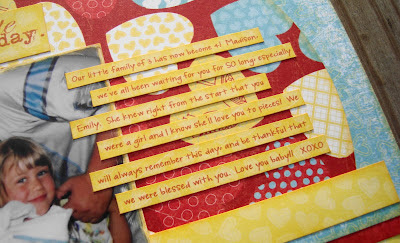 day.
Our little family of 3 has now become 4! Madison,
we've all been waiting for you for SO long, especially
Emily. She knew right from the start that you
were a girl and I know she'll love you to pieces! We
will always remember this day, and be thankful that
we were blessed with you. Love you baby!! XOXO